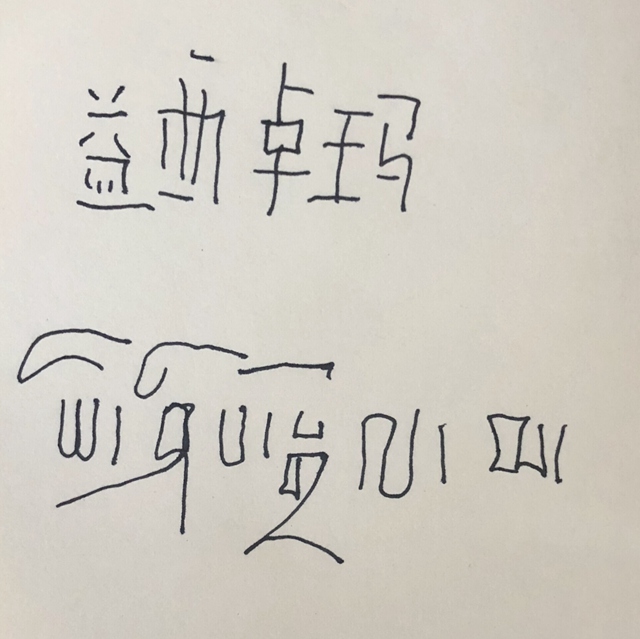 益西卓玛
ཡེ་ཤེས་སྒྲོལ་མ།